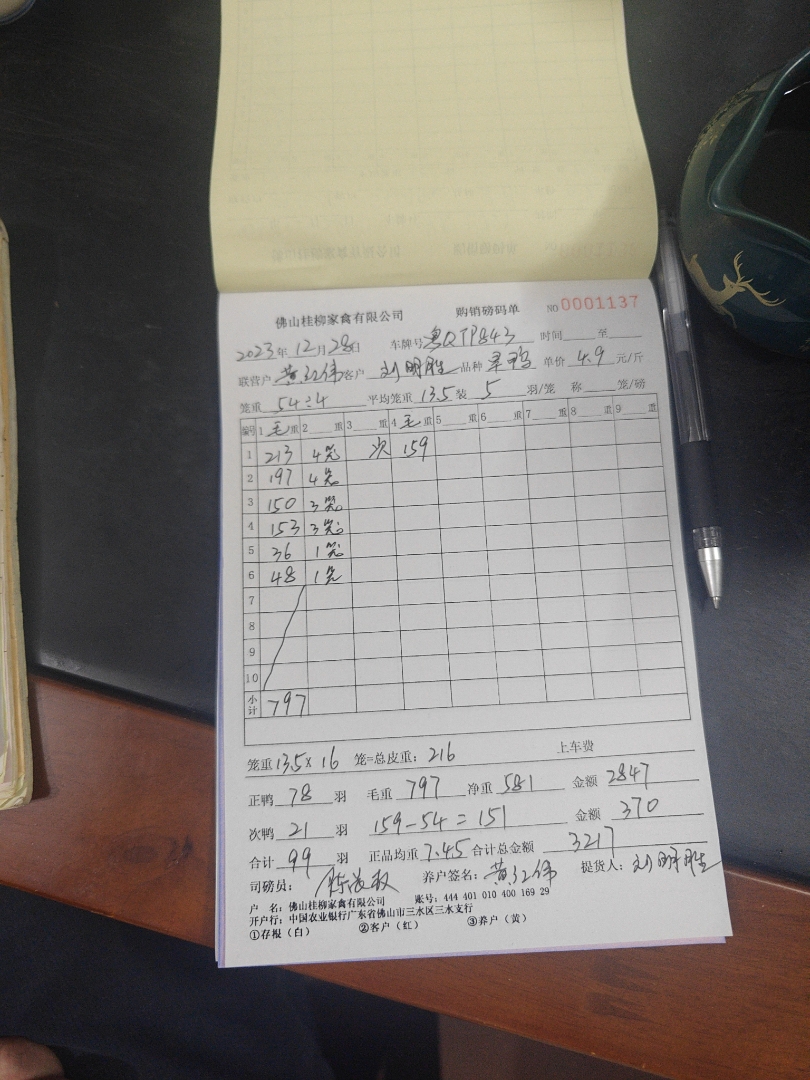 佛山桂柳家禽有限公司 购销磅码单 NO 0001137
2023年 12月 28日 车牌号 粤QTP843 时间 至
联营户 黄红伟 客户 刘明胜 品种 单价 4.9 元/斤
笼重 54÷4 平均笼重 13.5 装 5 羽/笼 称 笼/磅
编号 1 毛 重 2 重 3 重 4 毛 重 5 重 6 重 7 重 8 重 9 重
1 213 4笼 次 159
2 197 4笼
3 150 3笼
4 153 3笼
5 36 1笼
6 48 1笼
7
8
9
10
小计 797
笼重 13.5×16 笼=总皮重: 216 上车费
正鸭 78 羽 毛重 797 净重 581 金额 2847
次鸭 21 羽 159-54=151 金额 370
合计 99 羽 正品均重 7.45 合计总金额 3217
司磅员: 养户签名: 黄红伟 提货人: 刘明胜
户 名: 佛山桂柳家禽有限公司 账号: 444 401 010 400 169 29
开户行: 中国农业银行广东省佛山市三水区三水支行
①存根(白) ②客户(红) ③养户(黄)